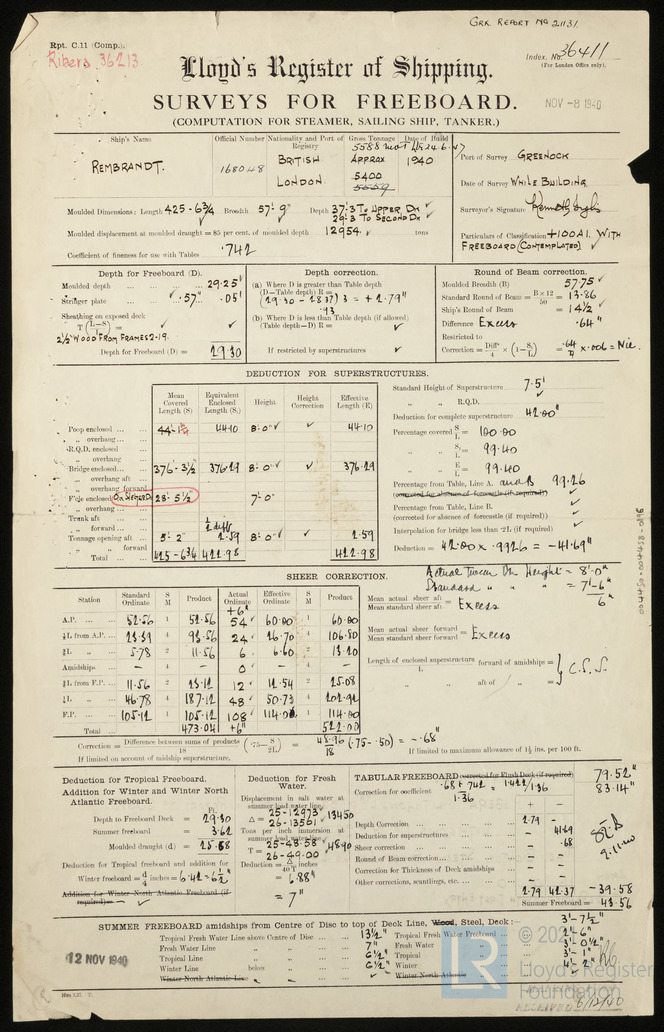 GRK. REPORT NO 21131.
Rpt. C.11 (Comp.).
Ribera 36213.
Index. No. 36411
(For London Office only).
Lloyd's Register of Shipping.
NOV -8 1940
SURVEYS FOR FREEBOARD.
(COMPUTATION FOR STEAMER, SAILING SHIP, TANKER.)
Ship's Name Official Number Nationality and Port of Registry Gross Tonnage Date of Build
REMBRANDT. 168048 BRITISH LONDON. APPROX 5400 1940
Port of Survey GREENOCK
Date of Survey WHILE BUILDING
Surveyor's Signature
Particulars of Classification +100A1. WITH FREEBOARD (CONTEMPLATED)
Moulded Dimensions: Length 425-6¾ Breadth 57'-9" Depth 37'.3 TO UPPER DK 29'.3 TO SECOND DK
Moulded displacement at moulded draught = 85 per cent. of moulded depth 12954. tons
Coefficient of fineness for use with Tables .742
Depth for Freeboard (D).
Moulded depth ... 29.25'
Stringer plate ... .57" .05'
Sheathing on exposed deck
T (L-S/L)
2½" WOOD FROM FRAMES 2-19.
Depth for Freeboard (D) = 29.30
Depth correction.
(a) Where D is greater than Table depth
(D—Table depth) R =
(29.30 - 28.37) 3 = +2.79"
.93
(b) Where D is less than Table depth (if allowed)
(Table depth—D) R =
If restricted by superstructures
Round of Beam correction.
Moulded Breadth (B) 57.75'
Standard Round of Beam = B×12/50 = 13.86
Ship's Round of Beam = 14½"
Difference Excess .64"
Restricted to
Correction = Diff/4 × (1 - S/L) = .64/4 × .006 = Nil.
DEDUCTION FOR SUPERSTRUCTURES.
Mean Covered Length (S) Equivalent Enclosed Length (S₁) Height Height Correction Effective Length (E)
Poop enclosed 44.10 8'-0" 44.10
" overhang
R.Q.D. enclosed
" overhang
Bridge enclosed 376'-3½" 376.29 8'-0" 376.29
" overhang aft
" overhang forward
F'cle enclosed On Shelter Dk 28'-5½" 7'-0"
" overhang
Trunk aft
" forward ½ diff.
Tonnage opening aft 5'-2" 2.59 8'-0" 2.59
" " forward
Total 425-6¾ 422.98 422.98
Standard Height of Superstructure 7.5'
" " R.Q.D.
Deduction for complete superstructure 42.00"
Percentage covered S/L = 100.00
" " S₁/L = 99.40
" " E/L = 99.40
Percentage from Table, Line A. and B 99.26
(corrected for absence of forecastle (if required))
Percentage from Table, Line B.
(corrected for absence of forecastle (if required))
Interpolation for bridge less than .2L (if required)
Deduction = 42.00 x .9926 = -41.69"
SHEER CORRECTION.
Station Standard Ordinate S M Product Actual Ordinate Effective Ordinate S M Product
+6"
A.P. 52.56 1 52.56 54 60.00 1 60.00
⅙L from A.P. 23.39 4 93.56 24 26.70 4 106.80
⅓L " 5.78 2 11.56 6 6.60 2 13.20
Amidships — 4 — 0 — 4 —
⅓L from F.P. 11.56 2 23.12 12 12.54 2 25.08
⅙L " 46.78 4 187.12 48 50.73 4 202.92
F.P. 105.12 1 105.12 108 114.00 1 114.00
Total 473.04 +6" 522.00
Actual Tween Dk Height = 8'-0"
Standard " " " = 7'-6"
6"
Mean actual sheer aft / Mean standard sheer aft = Excess
Mean actual sheer forward / Mean standard sheer forward = Excess
Length of enclosed superstructure forward of amidships = C.S.S.
L
" " aft of " =
Correction = Difference between sums of products / 18 (.75 - S/2L) = 48.96/18 (.75-.50) = -.68"
If limited on account of midship superstructure.
If limited to maximum allowance of 1½ ins. per 100 ft.
Deduction for Tropical Freeboard.
Addition for Winter and Winter North Atlantic Freeboard.
Ft.
Depth to Freeboard Deck = 29.30
Summer freeboard = 3.62
Moulded draught (d) = 25.68
Deduction for Tropical freeboard and addition for Winter freeboard = d/4 inches = 6.42 = 6½"
Addition for Winter North Atlantic Freeboard (if required) =
Deduction for Fresh Water.
Displacement in salt water at summer load water line
25-12973
Δ = 26-13561 13450
Tons per inch immersion at summer load water line
25-48.58
T = 26-49.00 48.90
Deduction = Δ/40T inches
= 6.88"
= 7"
TABULAR FREEBOARD (corrected for Flush Deck (if required)) 79.52"
Correction for coefficient .68+.742/1.36 = 1.422/1.36 83.14"
+ −
Depth Correction 2.79 -
Deduction for superstructures - 41.69
Sheer correction - .68
Round of Beam correction - -
Correction for Thickness of Deck amidships - -
Other corrections, scantlings, etc. - -
2.79 42.37 -39.58
Summer Freeboard = 43.56
SUMMER FREEBOARD amidships from Centre of Disc to top of Deck Line, Wood, Steel, Deck:— 3'-7½"
Tropical Fresh Water Line above Centre of Disc 13½" Tropical Fresh Water Freeboard 2'-6"
Fresh Water Line " " 7" Fresh Water " 3'-0½"
Tropical Line " " 6½" Tropical " 3'-1"
Winter Line below " 6½" Winter " 4'-2"
Winter North Atlantic Line " " Winter North Atlantic "
12 NOV 1940
LR
Lloyd's Register
Foundation
RECEIVED 6/12/40